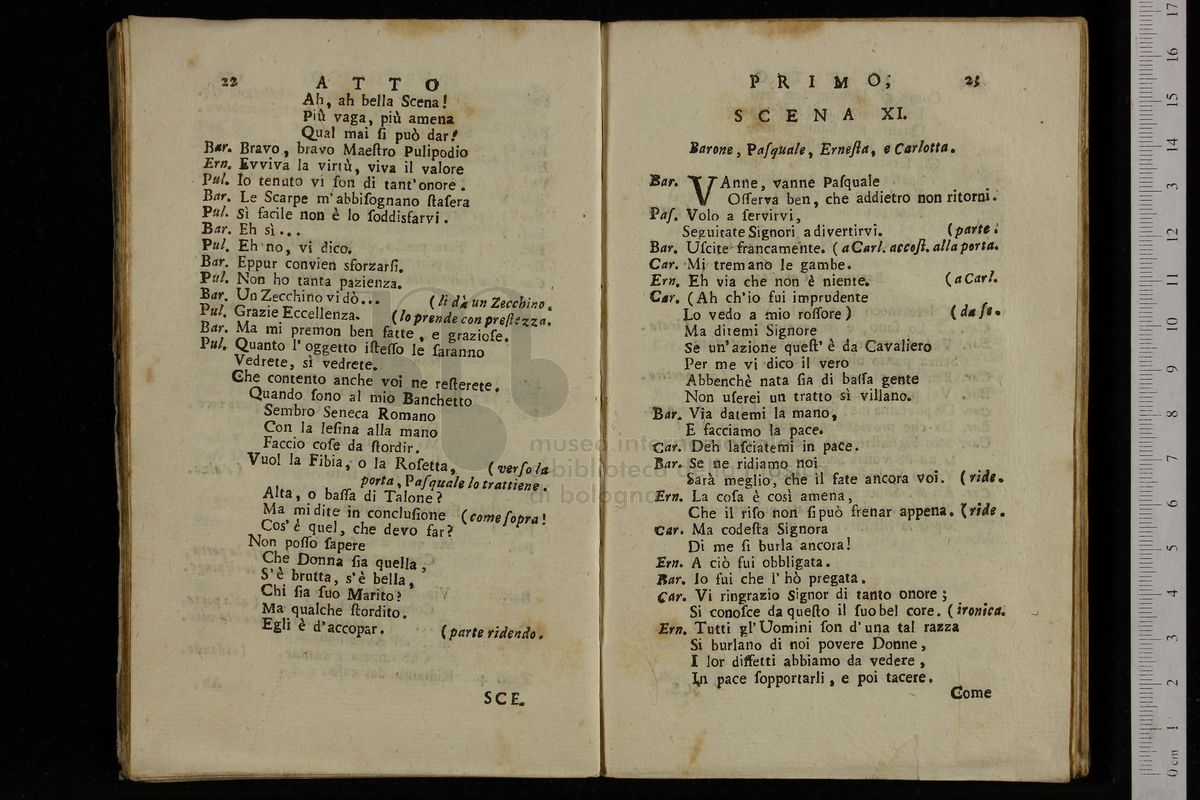 22 ATTO
Ah, ah bella Scena!
Più vaga, più amena
Qual mai ſi può dar!
Bar. Bravo, bravo Maeſtro Pulipodio
Ern. Evviva la virtù, viva il valore
Pul. Io tenuto vi ſon di tant'onore.
Bar. Le Scarpe m'abbiſognano ſtaſera
Pul. Sì facile non è lo ſoddisfarvi.
Bar. Eh sì...
Pul. Eh no, vi dico.
Bar. Eppur convien sforzarſi.
Pul. Non ho tanta pazienza.
Bar. Un Zecchino vi dò... (li dà un Zecchino.
Pul. Grazie Eccellenza. (lo prende con preſtezza.
Bar. Ma mi premon ben fatte, e grazioſe.
Pul. Quanto l'oggetto iſteſſo le faranno
Vedrete, sì vedrete.
Che contento anche voi ne reſterete.
Quando ſono al mio Banchetto
Sembro Seneca Romano
Con la leſina alla mano
Faccio coſe da ſtordir.
Vuol la Fibia, o la Roſetta, (verſo la
porta, Paſquale lo trattiene.
Alta, o baſſa di Talone?
Ma mi dite in concluſione (come ſopra!
Cos'é quel, che devo far?
Non poſſo ſapere
Che Donna ſia quella,
S'è brutta, s'è bella,
Chi ſia ſuo Marito?
Ma qualche ſtordito.
Egli è d'accopar. (parte ridendo.
SCE.
PRIMO; 23
SCENA XI.
Barone, Paſquale, Erneſta, e Carlotta.
Bar. VAnne, vanne Paſquale
Oſſerva ben, che addietro non ritorni.
Paſ. Volo a ſervirvi,
Seguitate Signori a divertirvi. (parte.
Bar. Uſcite francamente. (a Carl. accoſt. alla porta.
Car. Mi tremano le gambe.
Ern. Eh via che non è niente. (a Carl.
Car. (Ah ch'io fui imprudente
Lo vedo a mio roſſore) (da ſe.
Ma ditemi Signore
Se un'azione queſt'è da Cavaliero
Per me vi dico il vero
Abbenchè nata ſia di baſſa gente
Non uſerei un tratto sì villano.
Bar. Via datemi la mano,
E facciamo la pace.
Car. Deh laſciatemi in pace.
Bar. Se ne ridiamo noi
Sarà meglio, che il fate ancora voi. (ride.
Ern. La coſa è così amena,
Che il riſo non ſi può frenar appena. (ride.
Car. Ma codeſta Signora
Di me ſi burla ancora!
Ern. A ciò fui obbligata.
Bar. Io fui che l'hò pregata.
Car. Vi ringrazio Signor di tanto onore;
Si conoſce da queſto il ſuo bel core. (ironica.
Ern. Tutti gl'Uomini ſon d'una tal razza
Si burlano di noi povere Donne,
I lor diffetti abbiamo da vedere,
In pace ſopportarli, e poi tacere.
Come
museo internazionale
biblioteca della musica
di bologna
0 cm 1 2 3 4 5 6 7 8 9 10 11 12 13 14 15 16 17